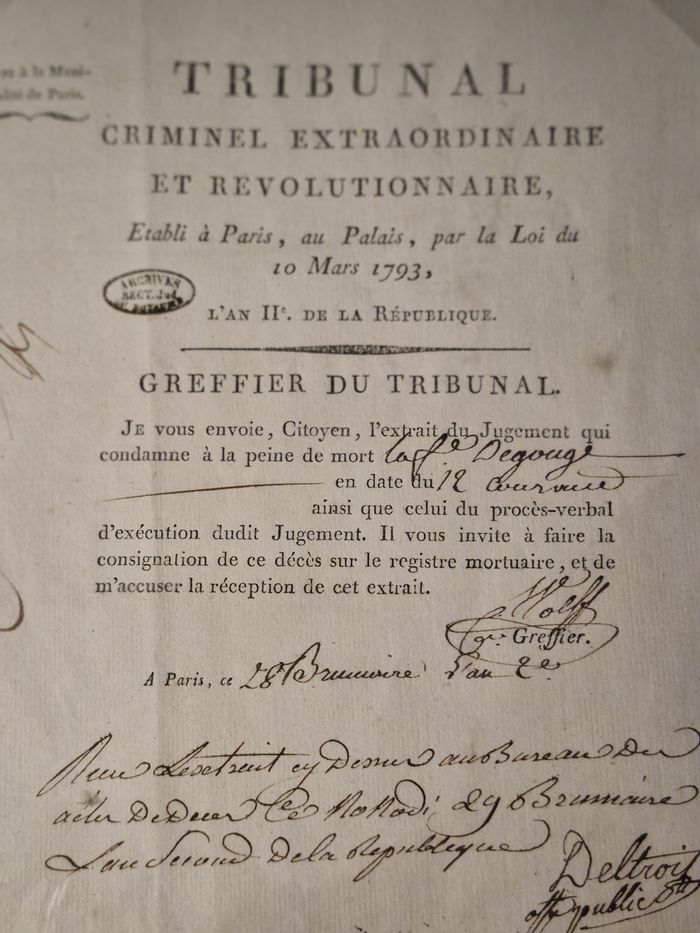 à la Muni-
de Paris.
TRIBUNAL
CRIMINEL EXTRAORDINAIRE
ET REVOLUTIONNAIRE,
Etabli à Paris, au Palais, par la Loi du
10 Mars 1793,
ARCHIVES
SECT. Jud.
DU ROYAUME
L'AN IIe. DE LA RÉPUBLIQUE.
GREFFIER DU TRIBUNAL.
JE vous envoie, Citoyen, l'extrait du Jugement qui
condamne à la peine de mort la fe Degouge
en date du 12 courant
ainsi que celui du procès-verbal
d'exécution dudit Jugement. Il vous invite à faire la
consignation de ce décès sur le registre mortuaire, et de
m'accuser la réception de cet extrait.
Wolff
Greffier.
A Paris, ce 28 Brumaire l'an 2e
Lextrait cy Dessus au Bureau Des
actes De Deces Ce Nonodi 29 Brumaire
Lan Second De la Republique
Deltroit
off public